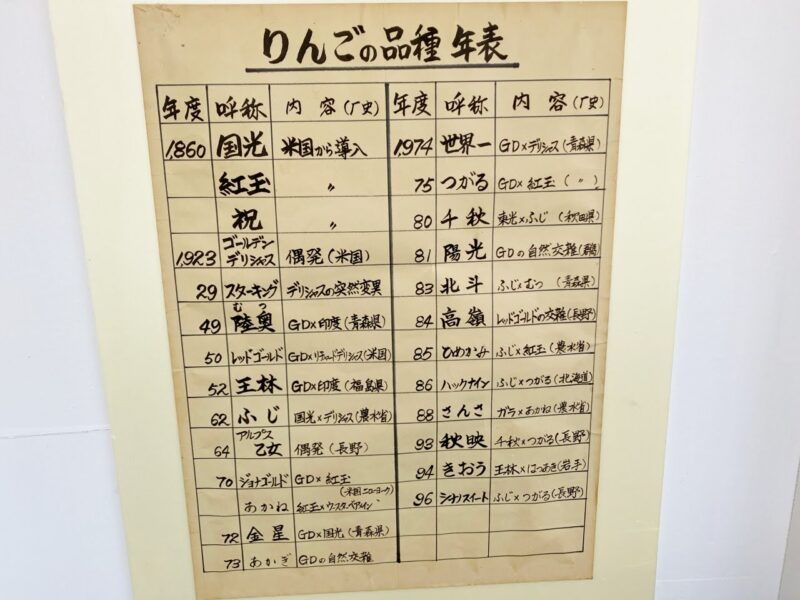 りんごの品種年表
年度 呼称 内容(厂史)
1,860 国光 米国から導入
紅玉 〃
祝 〃
1,923 ゴールデンデリシャス 偶発(米国)
29 スターキング デリシャスの突然変異
49 陸奥 むつ GD×印度(青森県)
50 レッドゴールド GD×リチャードデリシャス(米国)
52 王林 GD×印度(福島県)
62 ふじ 国光×デリシャス(農水省)
64 アルプス乙女 偶発(長野)
70 ジョナゴールド GD×紅玉(米国ニューヨーク)
あかね 紅玉×ウースターペアメイン
72 金星 GD×国光(青森県)
73 あかぎ GDの自然交雑
年度 呼称 内容(厂史)
1,974 世界一 GD×デリシャス(青森県)
75 つがる GD×紅玉(〃)
80 千秋 東光×ふじ(秋田県)
81 陽光 GDの自然交雑(群馬)
83 北斗 ふじ×むつ(青森県)
84 高嶺 レッドゴールドの交雑(長野)
85 ひめかみ ふじ×紅玉(農水省)
86 ハックナイン ふじ×つがる(北海道)
88 さんさ ガラ×あかね(農水省)
93 秋映 千秋×つがる(長野)
94 きおう 王林×はつあき(岩手)
96 シナノスイート ふじ×つがる(長野)